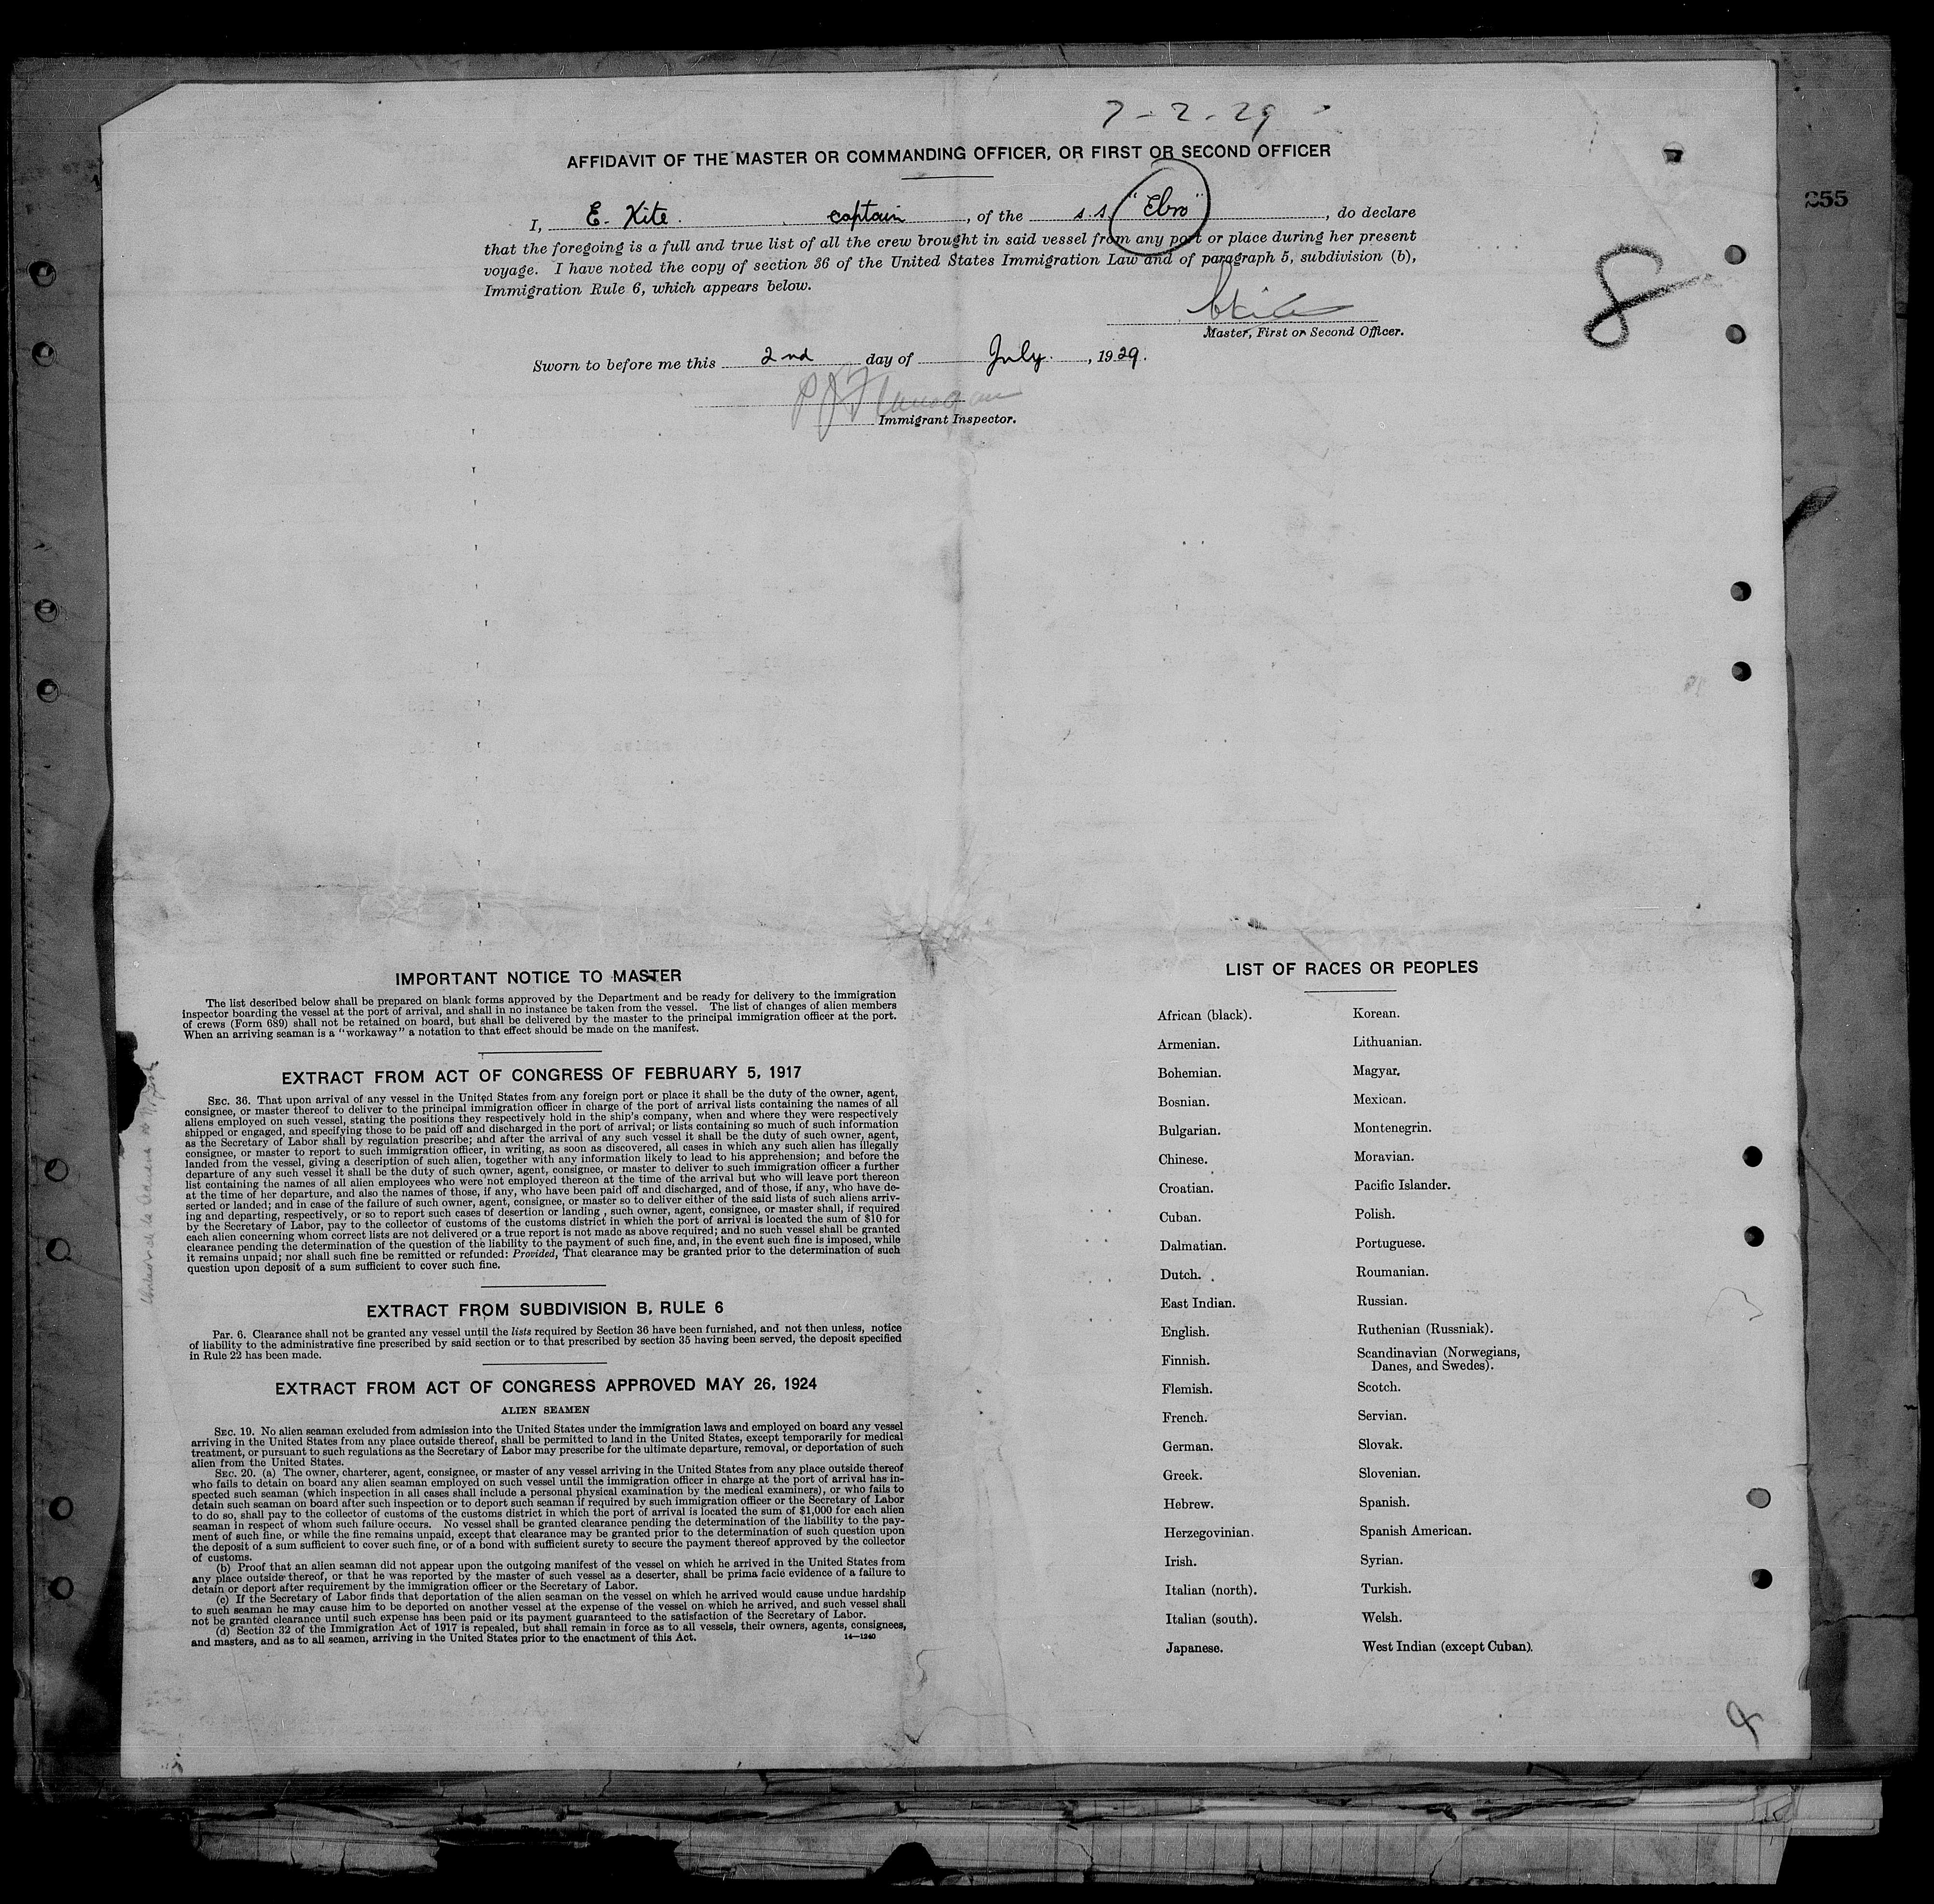 7-2-29
AFFIDAVIT OF THE MASTER OR COMMANDING OFFICER, OR FIRST OR SECOND OFFICER
255
I, E. Kite. captain, of the s.s. "Ebro", do declare
that the foregoing is a full and true list of all the crew brought in said vessel from any port or place during her present
voyage. I have noted the copy of section 36 of the United States Immigration Law and of paragraph 5, subdivision (b),
Immigration Rule 6, which appears below.
8
EKite
Master, First or Second Officer.
Sworn to before me this 2nd day of July, 1929.
P J Flanagan
Immigrant Inspector.
IMPORTANT NOTICE TO MASTER
The list described below shall be prepared on blank forms approved by the Department and be ready for delivery to the immigration
inspector boarding the vessel at the port of arrival, and shall in no instance be taken from the vessel. The list of changes of alien members
of crews (Form 689) shall not be retained on board, but shall be delivered by the master to the principal immigration officer at the port.
When an arriving seaman is a "workaway" a notation to that effect should be made on the manifest.
EXTRACT FROM ACT OF CONGRESS OF FEBRUARY 5, 1917
SEC. 36. That upon arrival of any vessel in the United States from any foreign port or place it shall be the duty of the owner, agent,
consignee, or master thereof to deliver to the principal immigration officer in charge of the port of arrival lists containing the names of all
aliens employed on such vessel, stating the positions they respectively hold in the ship's company, when and where they were respectively
shipped or engaged, and specifying those to be paid off and discharged in the port of arrival; or lists containing so much of such information
as the Secretary of Labor shall by regulation prescribe; and after the arrival of any such vessel it shall be the duty of such owner, agent,
consignee, or master to report to such immigration officer, in writing, as soon as discovered, all cases in which any such alien has illegally
landed from the vessel, giving a description of such alien, together with any information likely to lead to his apprehension; and before the
departure of any such vessel it shall be the duty of such owner, agent, consignee, or master to deliver to such immigration officer a further
list containing the names of all alien employees who were not employed thereon at the time of the arrival but who will leave port thereon
at the time of her departure, and also the names of those, if any, who have been paid off and discharged, and of those, if any, who have de-
serted or landed; and in case of the failure of such owner, agent, consignee, or master so to deliver either of the said lists of such aliens arriv-
ing and departing, respectively, or so to report such cases of desertion or landing, such owner, agent, consignee, or master shall, if required
by the Secretary of Labor, pay to the collector of customs of the customs district in which the port of arrival is located the sum of $10 for
each alien concerning whom correct lists are not delivered or a true report is not made as above required; and no such vessel shall be granted
clearance pending the determination of the question of the liability to the payment of such fine, and, in the event such fine is imposed, while
it remains unpaid; nor shall such fine be remitted or refunded: Provided, That clearance may be granted prior to the determination of such
question upon deposit of a sum sufficient to cover such fine.
EXTRACT FROM SUBDIVISION B, RULE 6
Par. 6. Clearance shall not be granted any vessel until the lists required by Section 36 have been furnished, and not then unless, notice
of liability to the administrative fine prescribed by said section or to that prescribed by section 35 having been served, the deposit specified
in Rule 22 has been made.
EXTRACT FROM ACT OF CONGRESS APPROVED MAY 26, 1924
ALIEN SEAMEN
SEC. 19. No alien seaman excluded from admission into the United States under the immigration laws and employed on board any vessel
arriving in the United States from any place outside thereof, shall be permitted to land in the United States, except temporarily for medical
treatment, or pursuant to such regulations as the Secretary of Labor may prescribe for the ultimate departure, removal, or deportation of such
alien from the United States.
SEC. 20. (a) The owner, charterer, agent, consignee, or master of any vessel arriving in the United States from any place outside thereof
who fails to detain on board any alien seaman employed on such vessel until the immigration officer in charge at the port of arrival has in-
spected such seaman (which inspection in all cases shall include a personal physical examination by the medical examiners), or who fails to
detain such seaman on board after such inspection or to deport such seaman if required by such immigration officer or the Secretary of Labor
to do so, shall pay to the collector of customs of the customs district in which the port of arrival is located the sum of $1,000 for each alien
seaman in respect of whom such failure occurs. No vessel shall be granted clearance pending the determination of the liability to the pay-
ment of such fine, or while the fine remains unpaid, except that clearance may be granted prior to the determination of such question upon
the deposit of a sum sufficient to cover such fine, or of a bond with sufficient surety to secure the payment thereof approved by the collector
of customs.
(b) Proof that an alien seaman did not appear upon the outgoing manifest of the vessel on which he arrived in the United States from
any place outside thereof, or that he was reported by the master of such vessel as a deserter, shall be prima facie evidence of a failure to
detain or deport after requirement by the immigration officer or the Secretary of Labor.
(c) If the Secretary of Labor finds that deportation of the alien seaman on the vessel on which he arrived would cause undue hardship
to such seaman he may cause him to be deported on another vessel at the expense of the vessel on which he arrived, and such vessel shall
not be granted clearance until such expense has been paid or its payment guaranteed to the satisfaction of the Secretary of Labor.
(d) Section 32 of the Immigration Act of 1917 is repealed, but shall remain in force as to all vessels, their owners, agents, consignees,
and masters, and as to all seamen, arriving in the United States prior to the enactment of this Act.
14—1240
LIST OF RACES OR PEOPLES
African (black). Korean.
Armenian. Lithuanian.
Bohemian. Magyar.
Bosnian. Mexican.
Bulgarian. Montenegrin.
Chinese. Moravian.
Croatian. Pacific Islander.
Cuban. Polish.
Dalmatian. Portuguese.
Dutch. Roumanian.
East Indian. Russian.
English. Ruthenian (Russniak).
Finnish. Scandinavian (Norwegians,
Danes, and Swedes).
Flemish. Scotch.
French. Servian.
German. Slovak.
Greek. Slovenian.
Hebrew. Spanish.
Herzegovinian. Spanish American.
Irish. Syrian.
Italian (north). Turkish.
Italian (south). Welsh.
Japanese. West Indian (except Cuban).